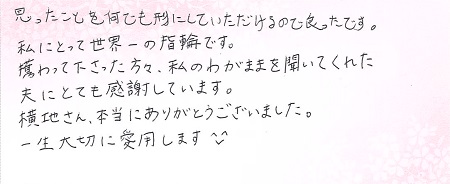 思ったことを何でも形にしていただけるので良かったです。
私にとって世界一の指輪です。
携わって下さった方々、私のわがままを聞いてくれた
夫にとても感謝しています。
横地さん、本当にありがとうございました。
一生大切に愛用します